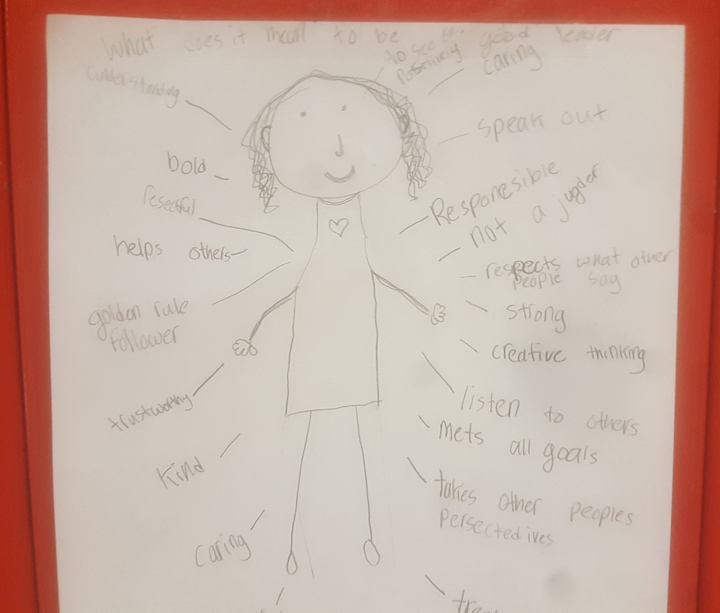 What does it mean to be good leader
understanding
bold
resectful
helps others
golden rule
follower
trustworthy
kind
caring
to see
positively
caring
speak out
Responesible
not a jugder
respects what other
people say
strong
creative thinking
listen to others
mets all goals
takes other peoples
persectedives